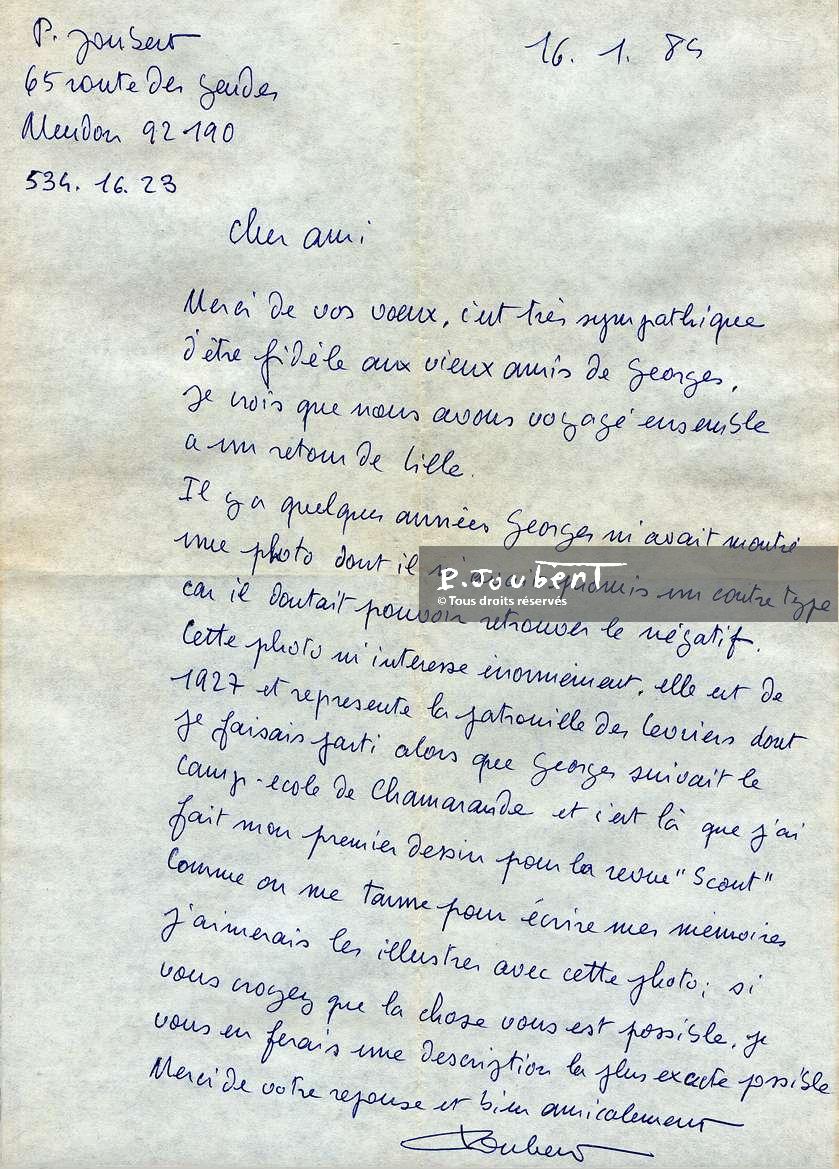 P. Joubert
16. 1. 85
65 route des Gardes
Meudon 92190
534. 16. 23
Cher ami
Merci de vos voeux, c'est très sympathique
d'être fidèle aux vieux amis de Georges,
je crois que nous avons voyagé ensemble
a un retour de Lille.
Il y a quelques années Georges m'avait montré
une photo dont il m'avait promis un contretype
P. JOUBERT
© Tous droits réservés
car il doutait pouvoir retrouver le négatif.
Cette photo m'interesse énormément, elle est de
1927 et represente la patrouille des Levriers dont
je faisais parti alors que Georges suivait le
camp-ecole de Chamarande et c'est là que j'ai
fait mon premier dessin pour la revue "Scout"
Comme on me tanne pour écrire mes mémoires
j'aimerais les illustrer avec cette photo; si
vous croyez que la chose vous est possible, je
vous en ferais une description la plus exacte possible
Merci de votre reponse et bien amicalement
Joubert